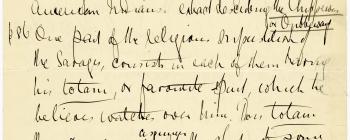 American Indians describing the Chippeways
or Ojibeway
p86 One part of the religious superstition of
the Savages, consists in each of them having
his totam, or favourite spirit, which he
believes watches over him. This totam